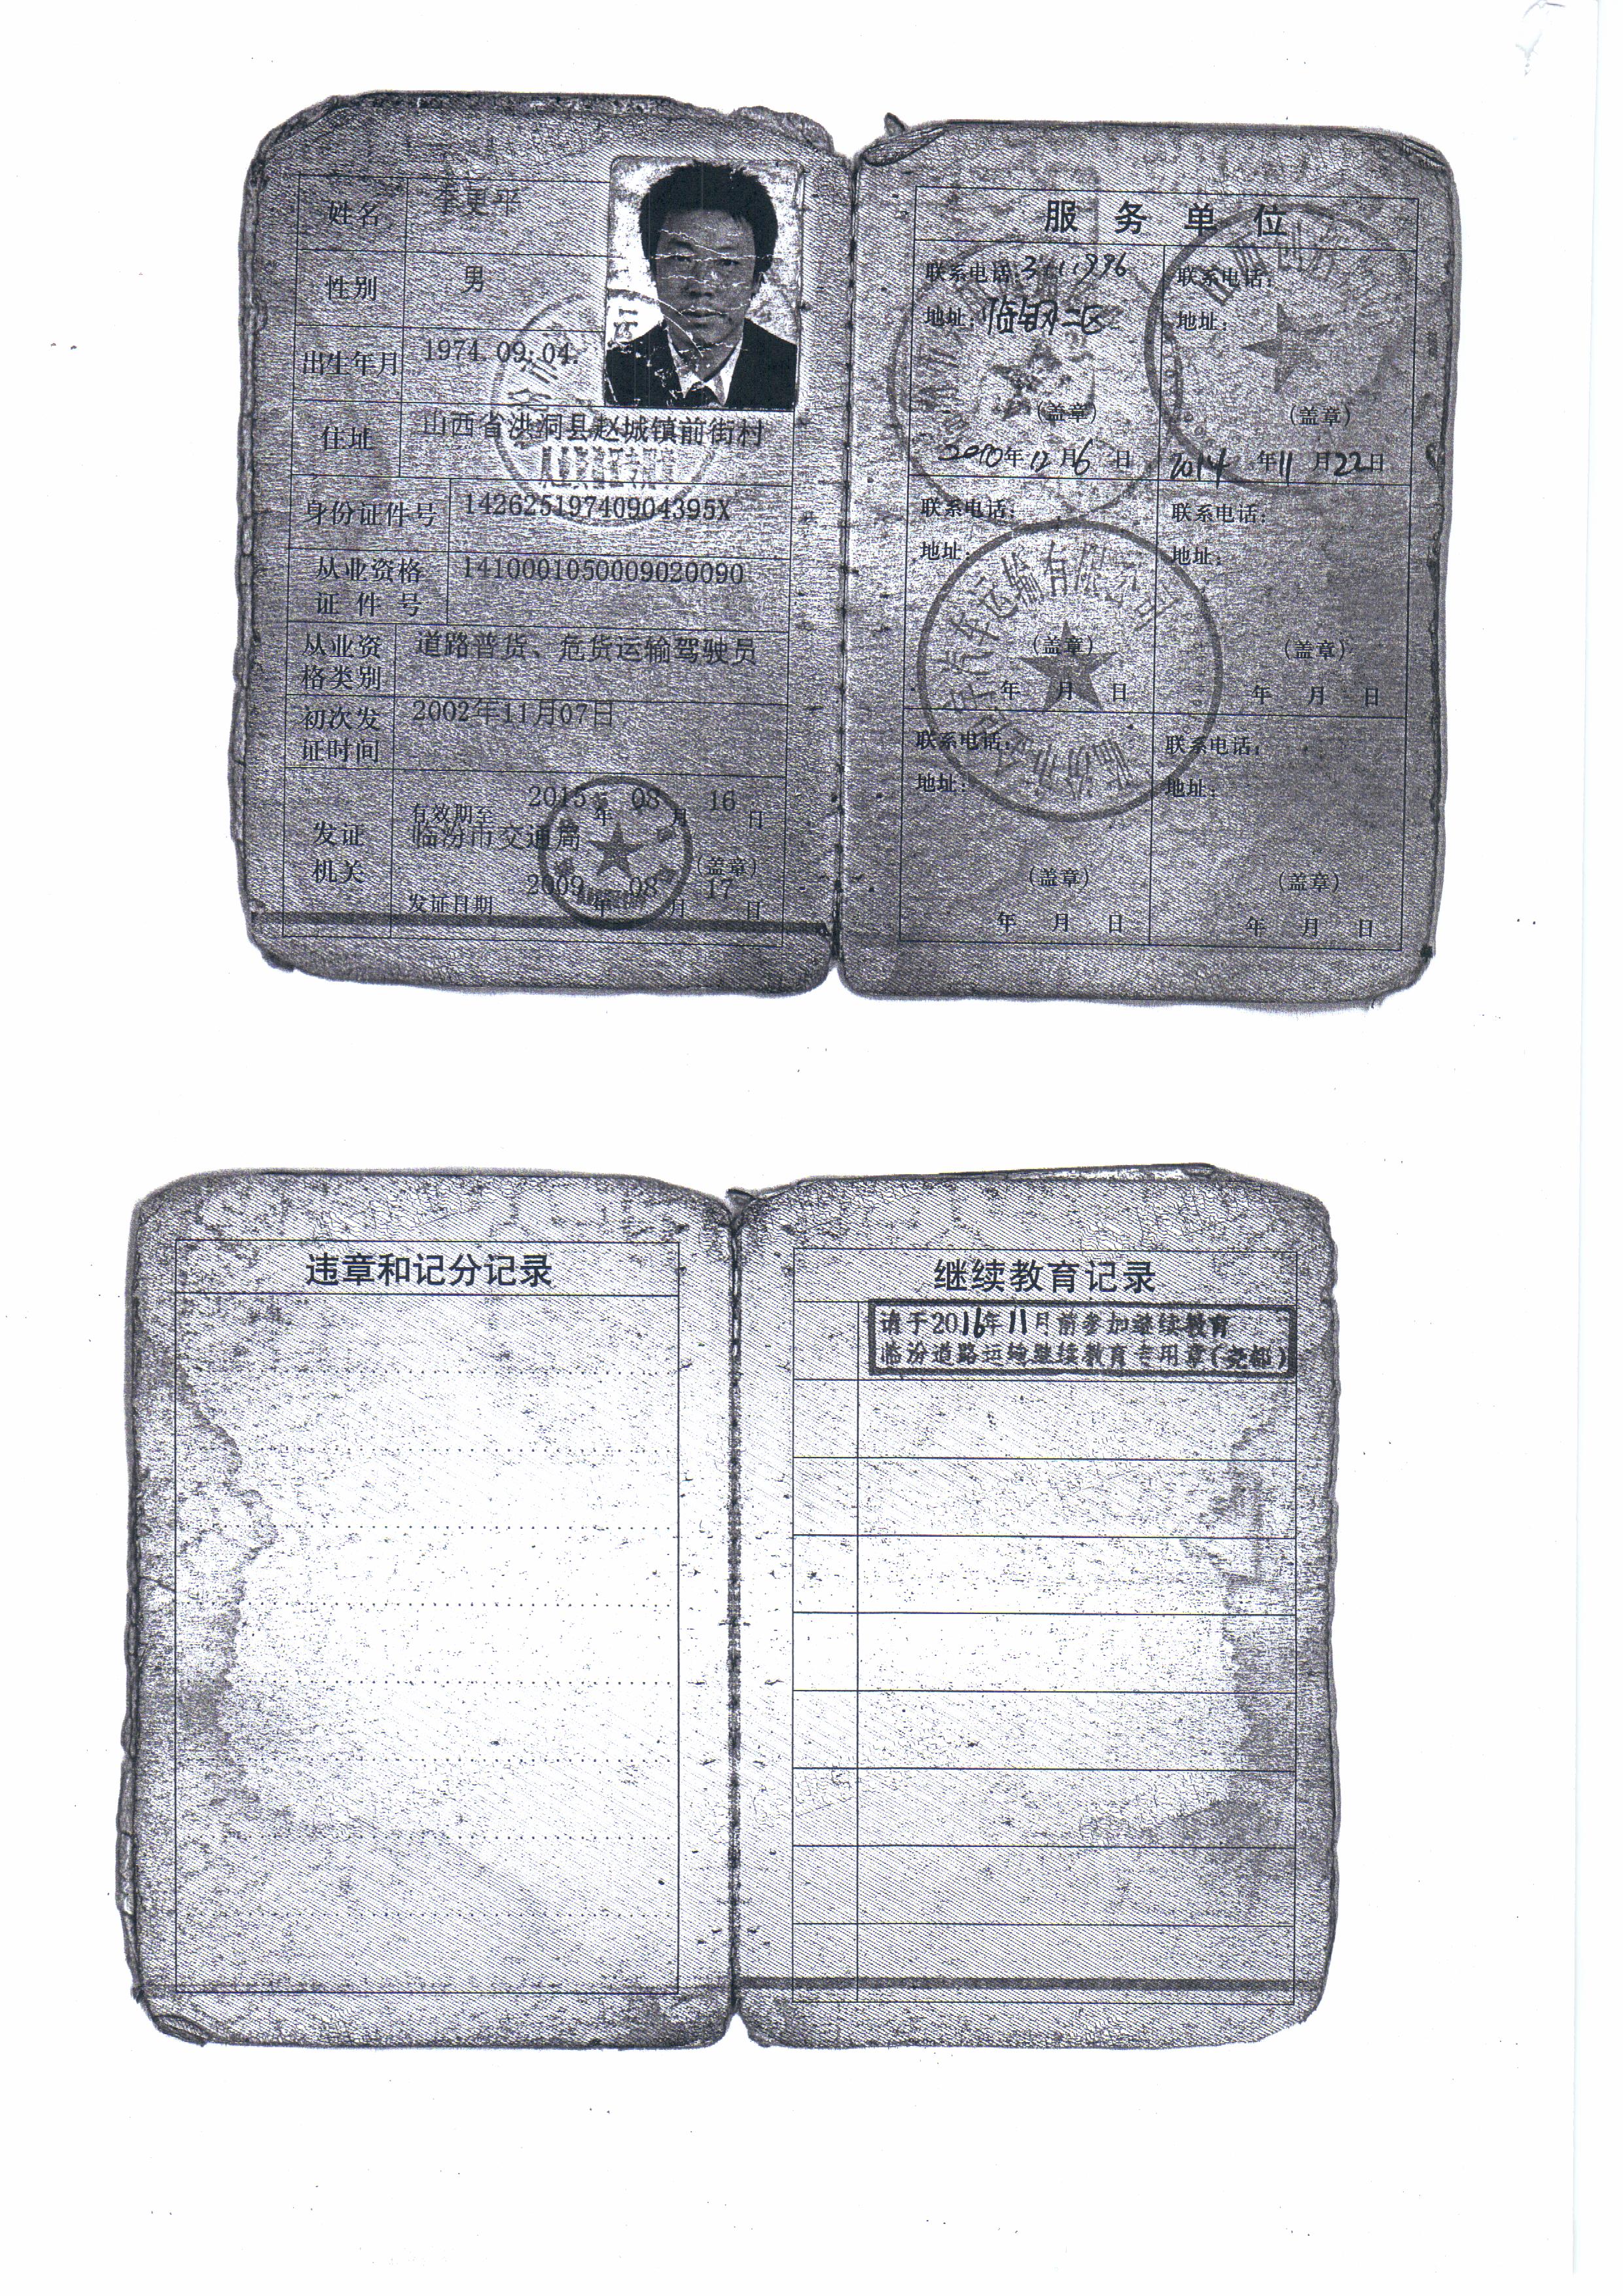 姓名
李更平
性别
男
出生年月
1974.09.04.
住址
山西省洪洞县赵城镇前街村
身份证件号
14262519740904395X
从业资格
证 件 号
1410001050009020090
从业资
格类别
道路普货、危货运输驾驶员
初次发
证时间
2002年11月07日
有效期至 2015年 08月 16日
发证
机关
临汾市交通局
(盖章)
发证日期 2009年 08月 17日
服 务 单 位
联系电话:
地址:
(盖章)
2010年12月6日
联系电话:
地址:
(盖章)
2014年11月22日
联系电话:
地址:
(盖章)
年 月 日
汽车运输有限公司
联系电话:
地址:
(盖章)
年 月 日
联系电话:
地址:
(盖章)
年 月 日
联系电话:
地址:
(盖章)
年 月 日
违章和记分记录
继续教育记录
请于2016年11月前参加继续教育
临汾道路运输继续教育专用章(尧都)